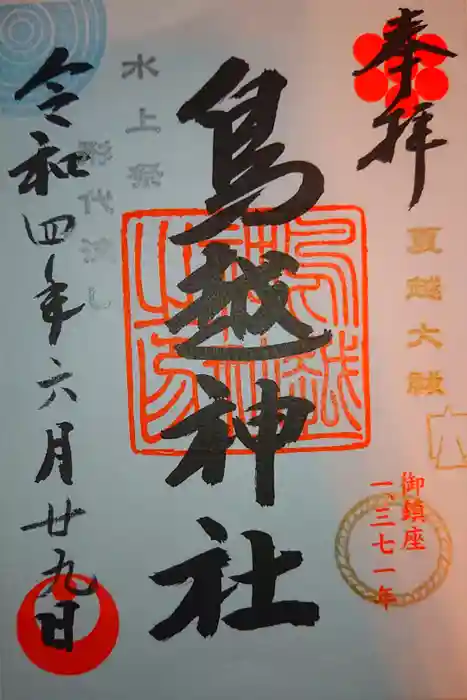 奉拝
夏越大祓
御鎮座
一、三七一年
鳥越神社
水上祭
形代流し
令和四年六月廿九日